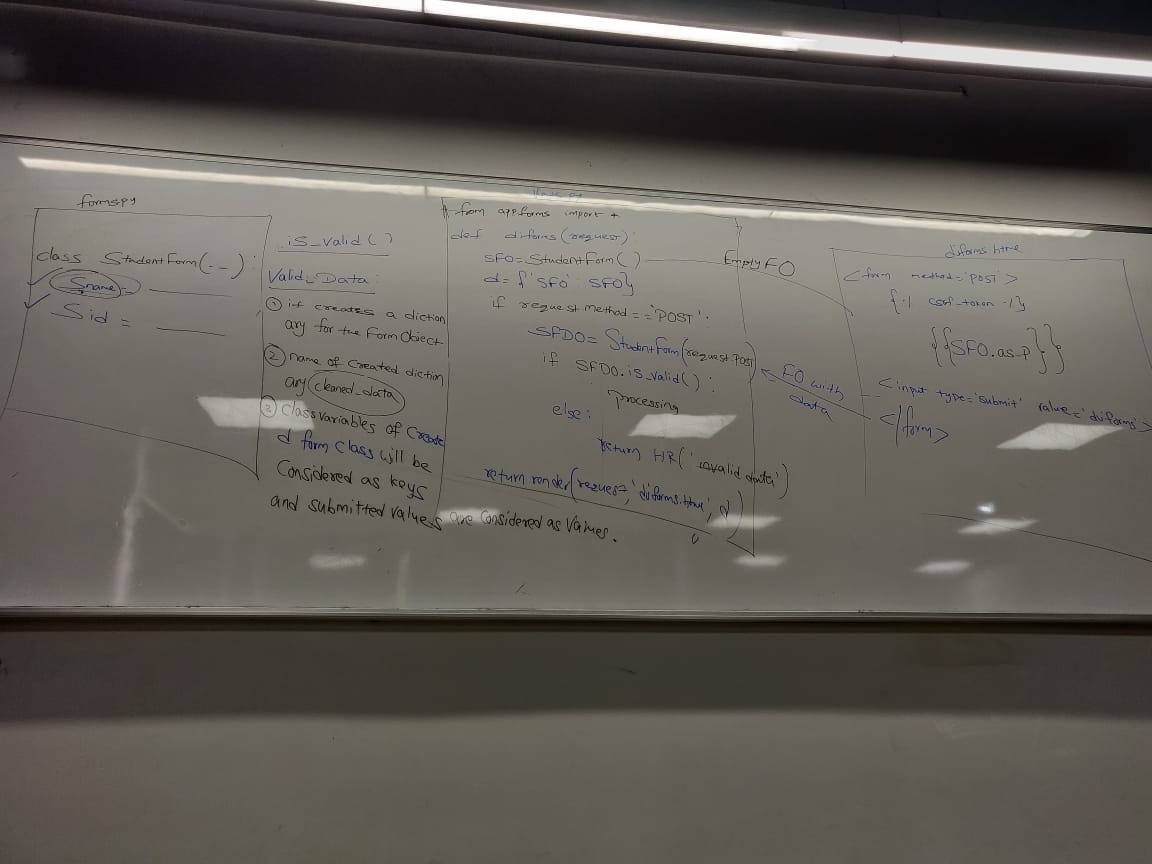 forms.py
class StudentForm(. - -):
Sname =
Sid =
is_valid()
Valid_Data:
① it creates a diction
ary for the Form Object
② name of Created diction
ary cleaned_data
③ Class variables of Create
d form Class will be
Considered as keys
and submitted values are Considered as Values.
from app.forms import *
def diforms(request):
SFO= StudentForm()
d={'SFO': SFO}
if request.method=='POST':
SFDO= StudentForm(request.POST)
if SFDO.is_valid():
Processing
else:
return HR('invalid data')
return render(request,'diforms.html', d)
Empty FO
FO with
data
diforms.html
<form method='POST'>
{% csrf_token %}
{{SFO.as_p}}
<input type='submit' value='diforms'>
</form>